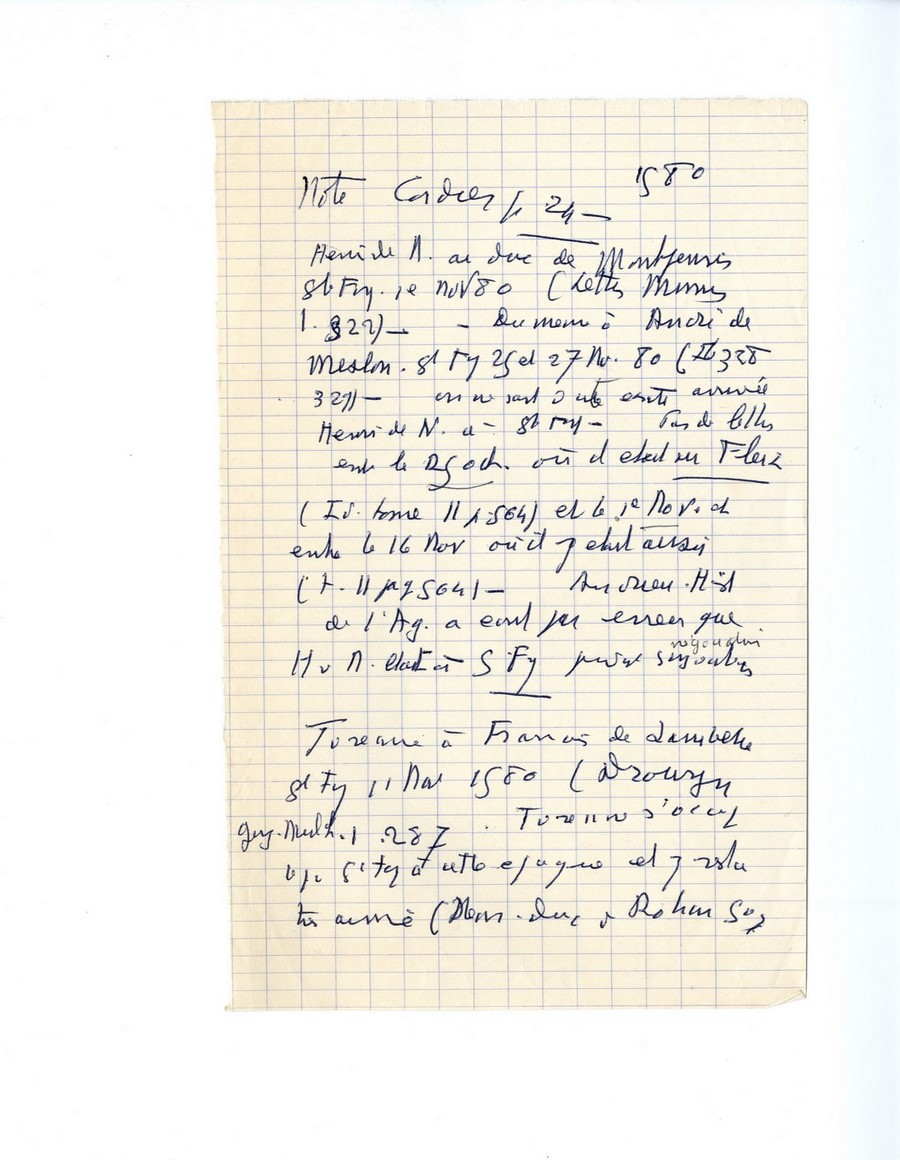 Note Cordier p. 24 — 1580
Henri de N. au duc de Montpensier
St Foy. 1e nov 80 (Lettres
1. 322) — - Du meme à André de
Meslon. St Fy 25 et 27 Nov. 80 (II 328
329) — on ne sait date exacte arrivée
Henri de N. à St Foy — Pas de lettres
entre le 25 oct. où il etait sur Fleix
(Id. tome II p. 564) et le 1e Nov. et
entre le 16 Nov où il y etait aussi
(t. II pag 564) — Andrieu. Hist
de l'Ag. a ecrit par erreur que
H d N. etait à S Fy
négociations
Turenne à Francois de
St Fy 11 Nov 1580 (Drouyn
1. 287 Turenne s'occup
Ste Fy à cette epoque et y resta
(Mem. duc de Rohan